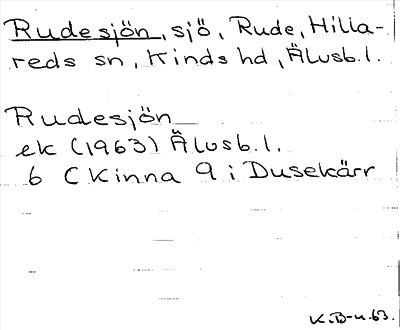 Rudesjön, sjö, Rude, Hilla-
reds sn, Kinds hd, Älvsb. l.
Rudesjön
ek (1963) Älvsb. l.
6 C Kinna 9 i Dusekärr
K.B-n.63.